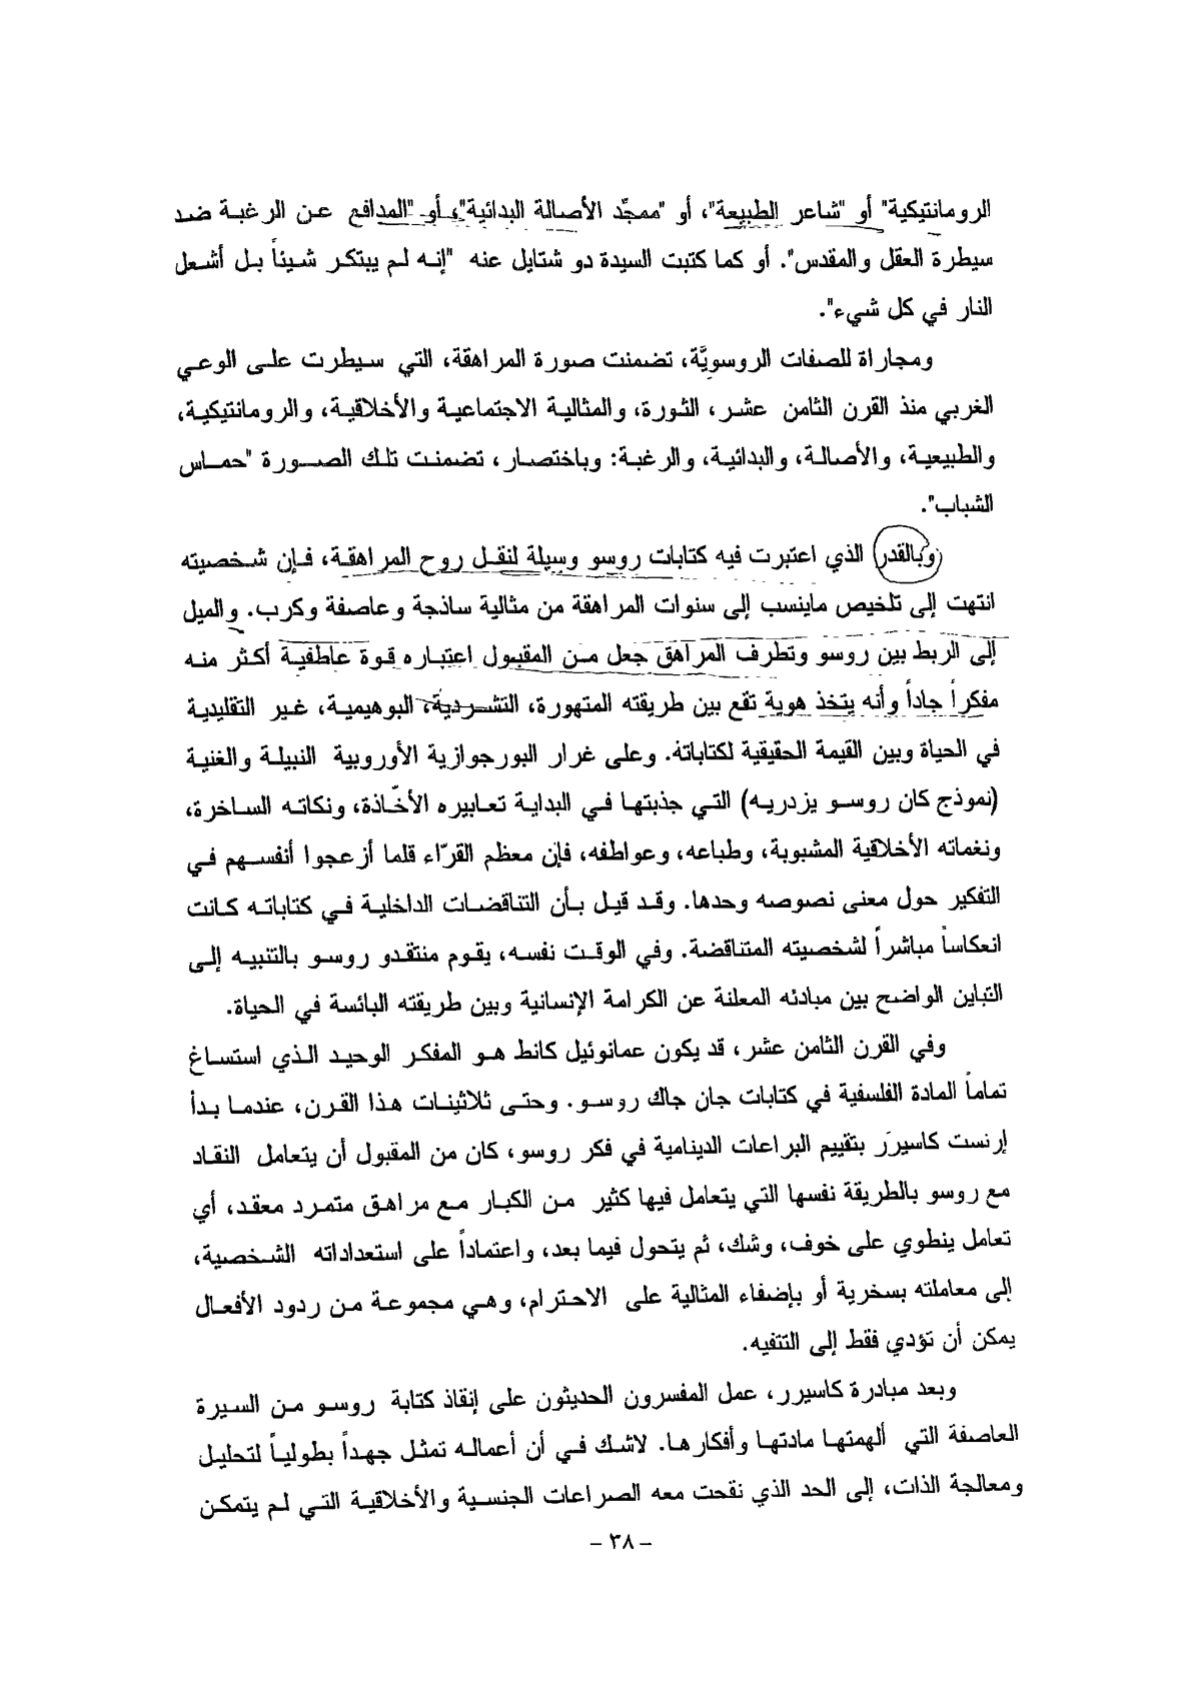 الرومانتيكية" أو "شاعر الطبيعة"، أو "ممجّد الأصالة البدائية"، أو "المدافع عن الرغبة ضد
سيطرة العقل والمقدس". أو كما كتبت السيدة دو شتايل عنه "إنه لم يبتكر شيئاً بل أشعل
النار في كل شيء".
ومجاراة للصفات الروسويَّة، تضمنت صورة المراهقة، التي سيطرت على الوعي
الغربي منذ القرن الثامن عشر، الثورة، والمثالية الاجتماعية والأخلاقية، والرومانتيكية،
والطبيعية، والأصالة، والبدائية، والرغبة: وباختصار، تضمنت تلك الصورة "حماس
الشباب".
وبالقدر الذي اعتبرت فيه كتابات روسو وسيلة لنقل روح المراهقة، فإن شخصيته
انتهت إلى تلخيص ماينسب إلى سنوات المراهقة من مثالية ساذجة وعاصفة وكرب. والميل
إلى الربط بين روسو وتطرف المراهق جعل من المقبول اعتباره قوة عاطفية أكثر منه
مفكراً جاداً وأنه يتخذ هوية تقع بين طريقته المتهورة، التشردية، البوهيمية، غير التقليدية
في الحياة وبين القيمة الحقيقية لكتاباتة. وعلى غرار البورجوازية الأوروبية النبيلة والغنية
(نموذج كان روسو يزدريه) التي جذبتها في البداية تعابيره الأخّاذة، ونكاته الساخرة،
ونغماته الأخلاقية المشبوبة، وطباعه، وعواطفه، فإن معظم القرّاء قلما أزعجوا أنفسهم في
التفكير حول معنى نصوصه وحدها. وقد قيل بأن التناقضات الداخلية في كتاباته كانت
انعكاساً مباشراً لشخصيته المتناقضة. وفي الوقت نفسه، يقوم منتقدو روسو بالتنبيه إلى
التباين الواضح بين مبادئه المعلنة عن الكرامة الإنسانية وبين طريقته البائسة في الحياة.
وفي القرن الثامن عشر، قد يكون عمانوئيل كانط هو المفكر الوحيد الذي استساغ
تماماً المادة الفلسفية في كتابات جان جاك روسو. وحتى ثلاثينات هذا القرن، عندما بدأ
إرنست كاسيرَر بتقييم البراعات الدينامية في فكر روسو، كان من المقبول أن يتعامل النقاد
مع روسو بالطريقة نفسها التي يتعامل فيها كثير من الكبار مع مراهق متمرد معقد، أي
تعامل ينطوي على خوف، وشك، ثم يتحول فيما بعد، واعتماداً على استعداداته الشخصية،
إلى معاملته بسخرية أو بإضفاء المثالية على الاحترام، وهي مجموعة من ردود الأفعال
يمكن أن تؤدي فقط إلى التتفيه.
وبعد مبادرة كاسيرر، عمل المفسرون الحديثون على إنقاذ كتابة روسو من السيرة
العاصفة التي ألهمتها مادتها وأفكارها. لاشك في أن أعماله تمثل جهداً بطولياً لتحليل
ومعالجة الذات، إلى الحد الذي نقحت معه الصراعات الجنسية والأخلاقية التي لم يتمكن
– ٣٨ –